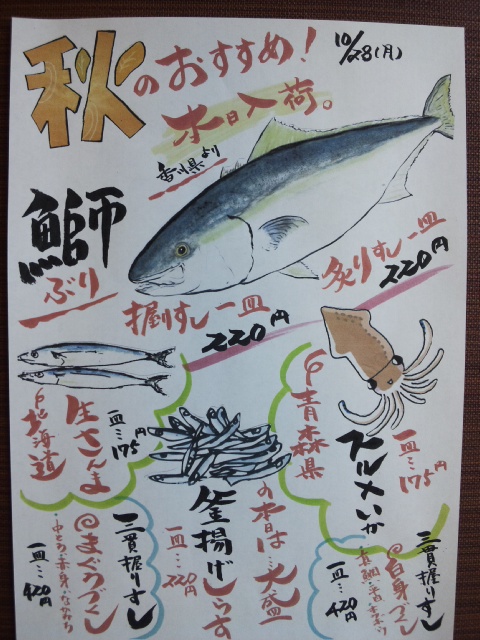 秋のおすすめ！
10/28(月)
本日入荷。
香川県より
鰤
ぶり
握りすし一皿
220円
炙りすし一皿
220円
生さんま
一皿…175円
北海道
青森県
スルメいか
一皿…175円
釜揚げしらす
本日は…大盛
一皿…220円
三貫握りすし
まぐろづくし
中とろ・赤身・
一皿…420円
三貫握りすし
白身づくし
一皿…420円